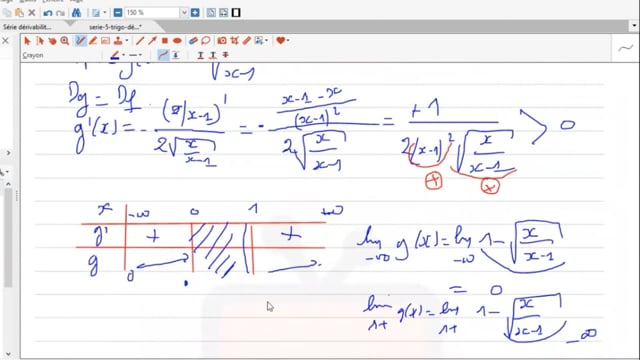 150 %
Série dérivabilit...
serie-5-trigo-dé...
Crayon
√x-1
Dg = Df
g'(x) = - (x/x-1)' / 2√(x/x-1) = - ((x-1-x)/(x-1)²) / 2√(x/x-1) = +1 / 2(x-1)²√(x/x-1) > 0
+ +
x -∞ 0 1 +∞
g' + +
g 0
lim -∞ g(x) = lim -∞ 1 - √(x/x-1)
= 0
lim 1+ g(x) = lim 1+ 1 - √(x/x-1) -∞